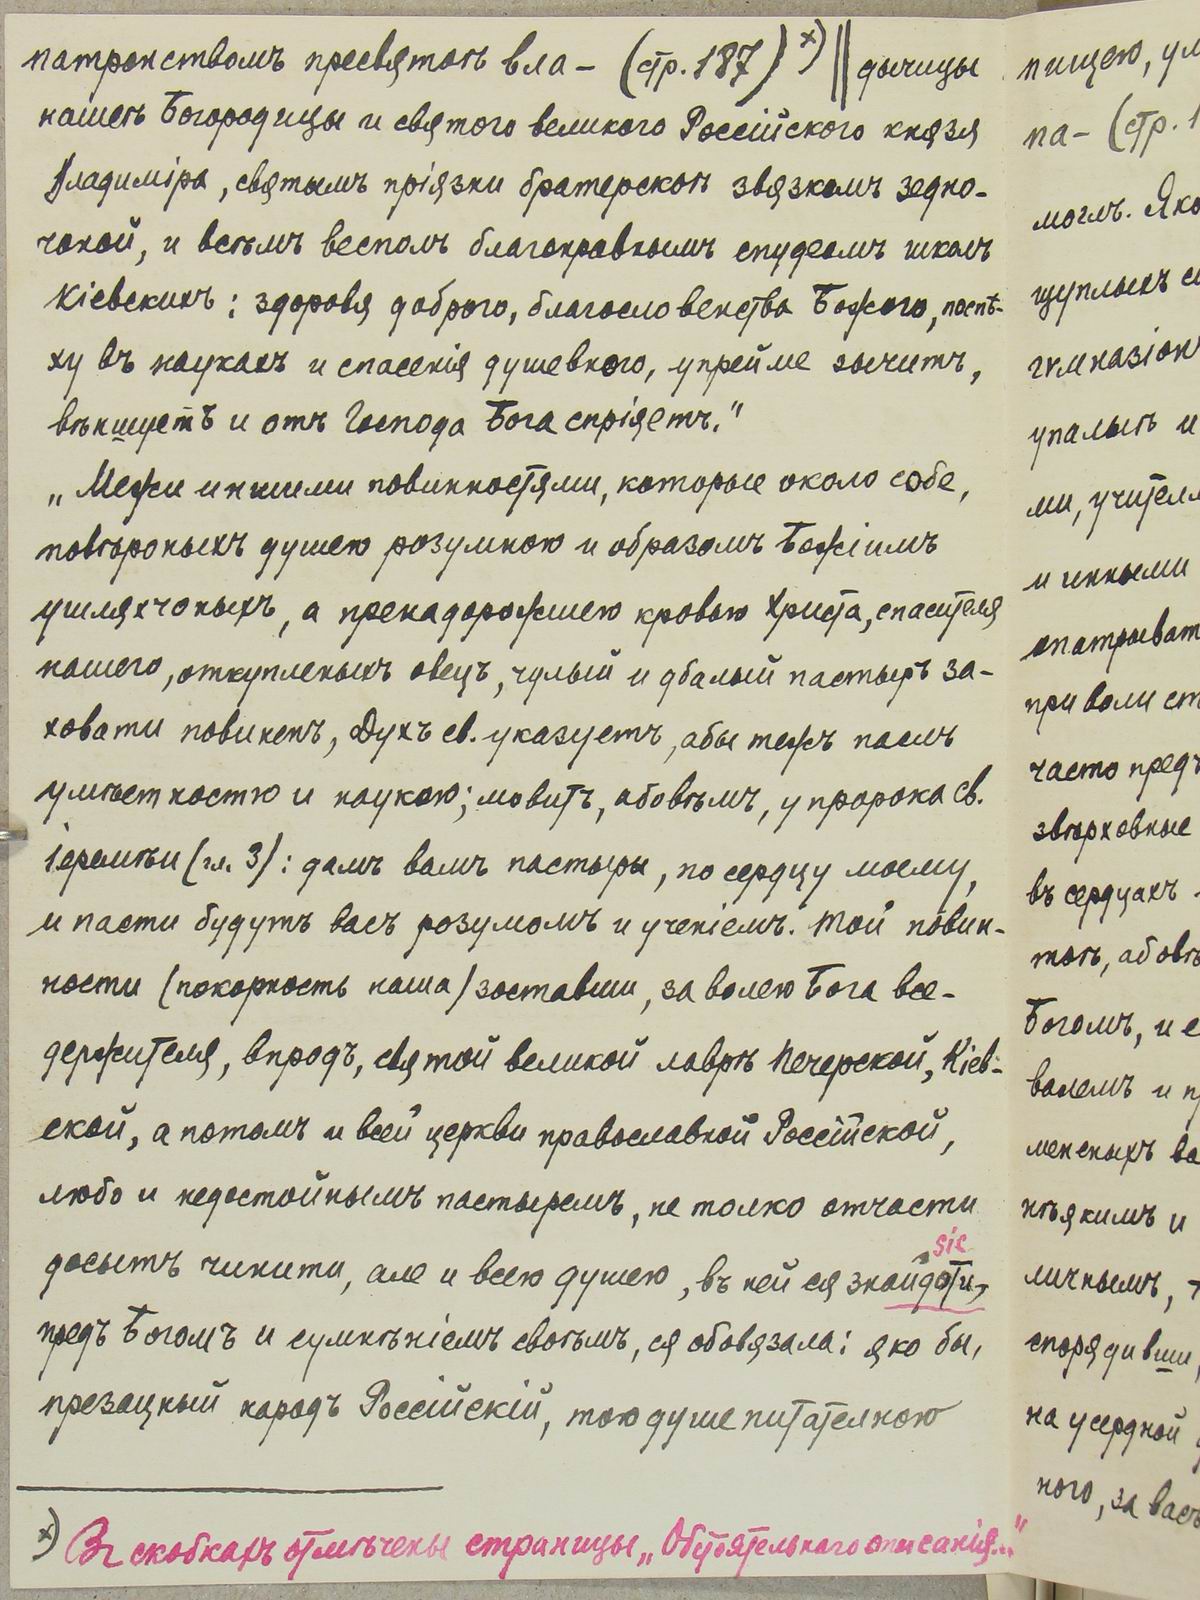 патронствомъ пресвятоѣ вла- (стр. 187) х) || дычицы
нашеѣ Богородицы и святого великого Россійского князя
Владиміра, святымъ пріязни братерскоѣ звязкомъ зедно-
чоной, и всѣмъ весполъ благонравнымъ спудеомъ школъ
Кіевскихъ: здоровя доброго, благословенства Божого, поспѣ-
ху въ наукахъ и спасенія душевного, упрейме зычитъ,
вѣншуетъ и отъ Господа Бога спріяетъ."
„Межи иншими повинностями, которые около собе,
повѣроныхъ душею розумною и образомъ Божіимъ
ушляхчоныхъ, а пренадорожшею кровью Христа, спасителя
нашего, откупленыхъ овецъ, чулый и дбалый пастырь за-
ховати повиненъ, Духъ св. указуетъ, абы тежъ паслъ
умѣетностю и наукою; мовитъ, абовѣмъ, у пророка св.
Іереміи (гл. 3): дамъ вамъ пастыры, по сердцу моему,
и пасти будутъ васъ розумомъ и ученіемъ. Той повин-
ности (покорность наша) зоставши, за волею Бога все-
держителя, впродъ, святой великой лаврѣ Печерской, Кіев-
ской, а потомъ и всей церкви православной Россійской,
любо и недостойнымъ пастыремъ, не толко отчасти
sic
досытъ чинити, але и всею душею, въ ней ся знайдоти,
предъ Богомъ и сумнѣніемъ своѣмъ, ся обовязала: яко бы,
презацный народъ Россійскій, тою душе питателною
х) Въ скобкахъ отмѣчены страницы „Обстоятельнаго описанія..."
пищею, ум
па- (стр. 1
моглъ. Яко
щуплыхъ
гѵмназіон
упалыѣ и
ми, учител
и инными
опатрыват
при воли ст
часто предъ
звѣрховные
въ сердцахъ
тоѣ, абовѣ
Богомъ, и е
валемъ и п
мененыхъ ва
нѣякимъ и
личнымъ,
спорядивши,
на усердной
ного, за васъ